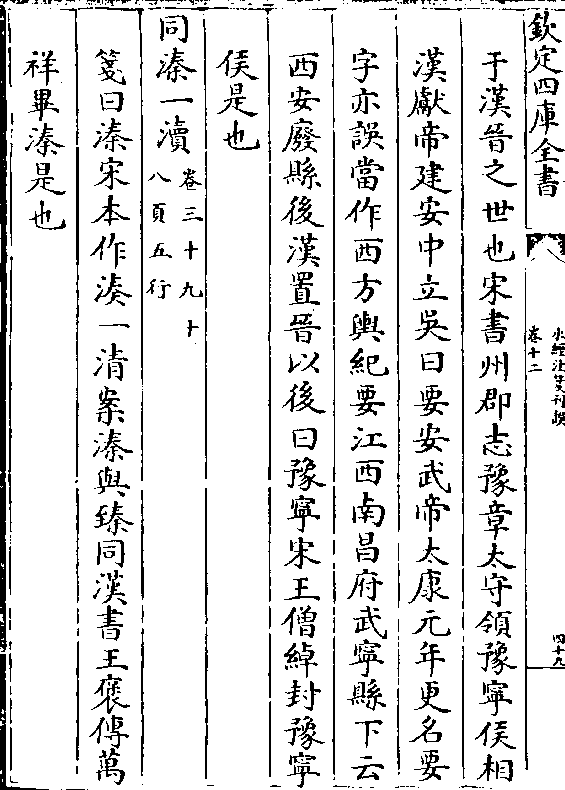 欽定四庫全書
水經注箋刊誤
卷十二
四十九
于漢晉之世也宋書州郡志豫章太守領豫寧侯相
漢獻帝建安中立吳曰要安武帝太康元年更名要
字亦誤當作西方輿紀要江西南昌府武寧縣下云
西安廢縣後漢置晉以後曰豫寧宋王僧綽封豫寧
侯是也
同溱一瀆卷三十九十
八頁五行
箋曰溱宋本作湊一清案溱與臻同漢書王褒傳萬
祥畢溱是也